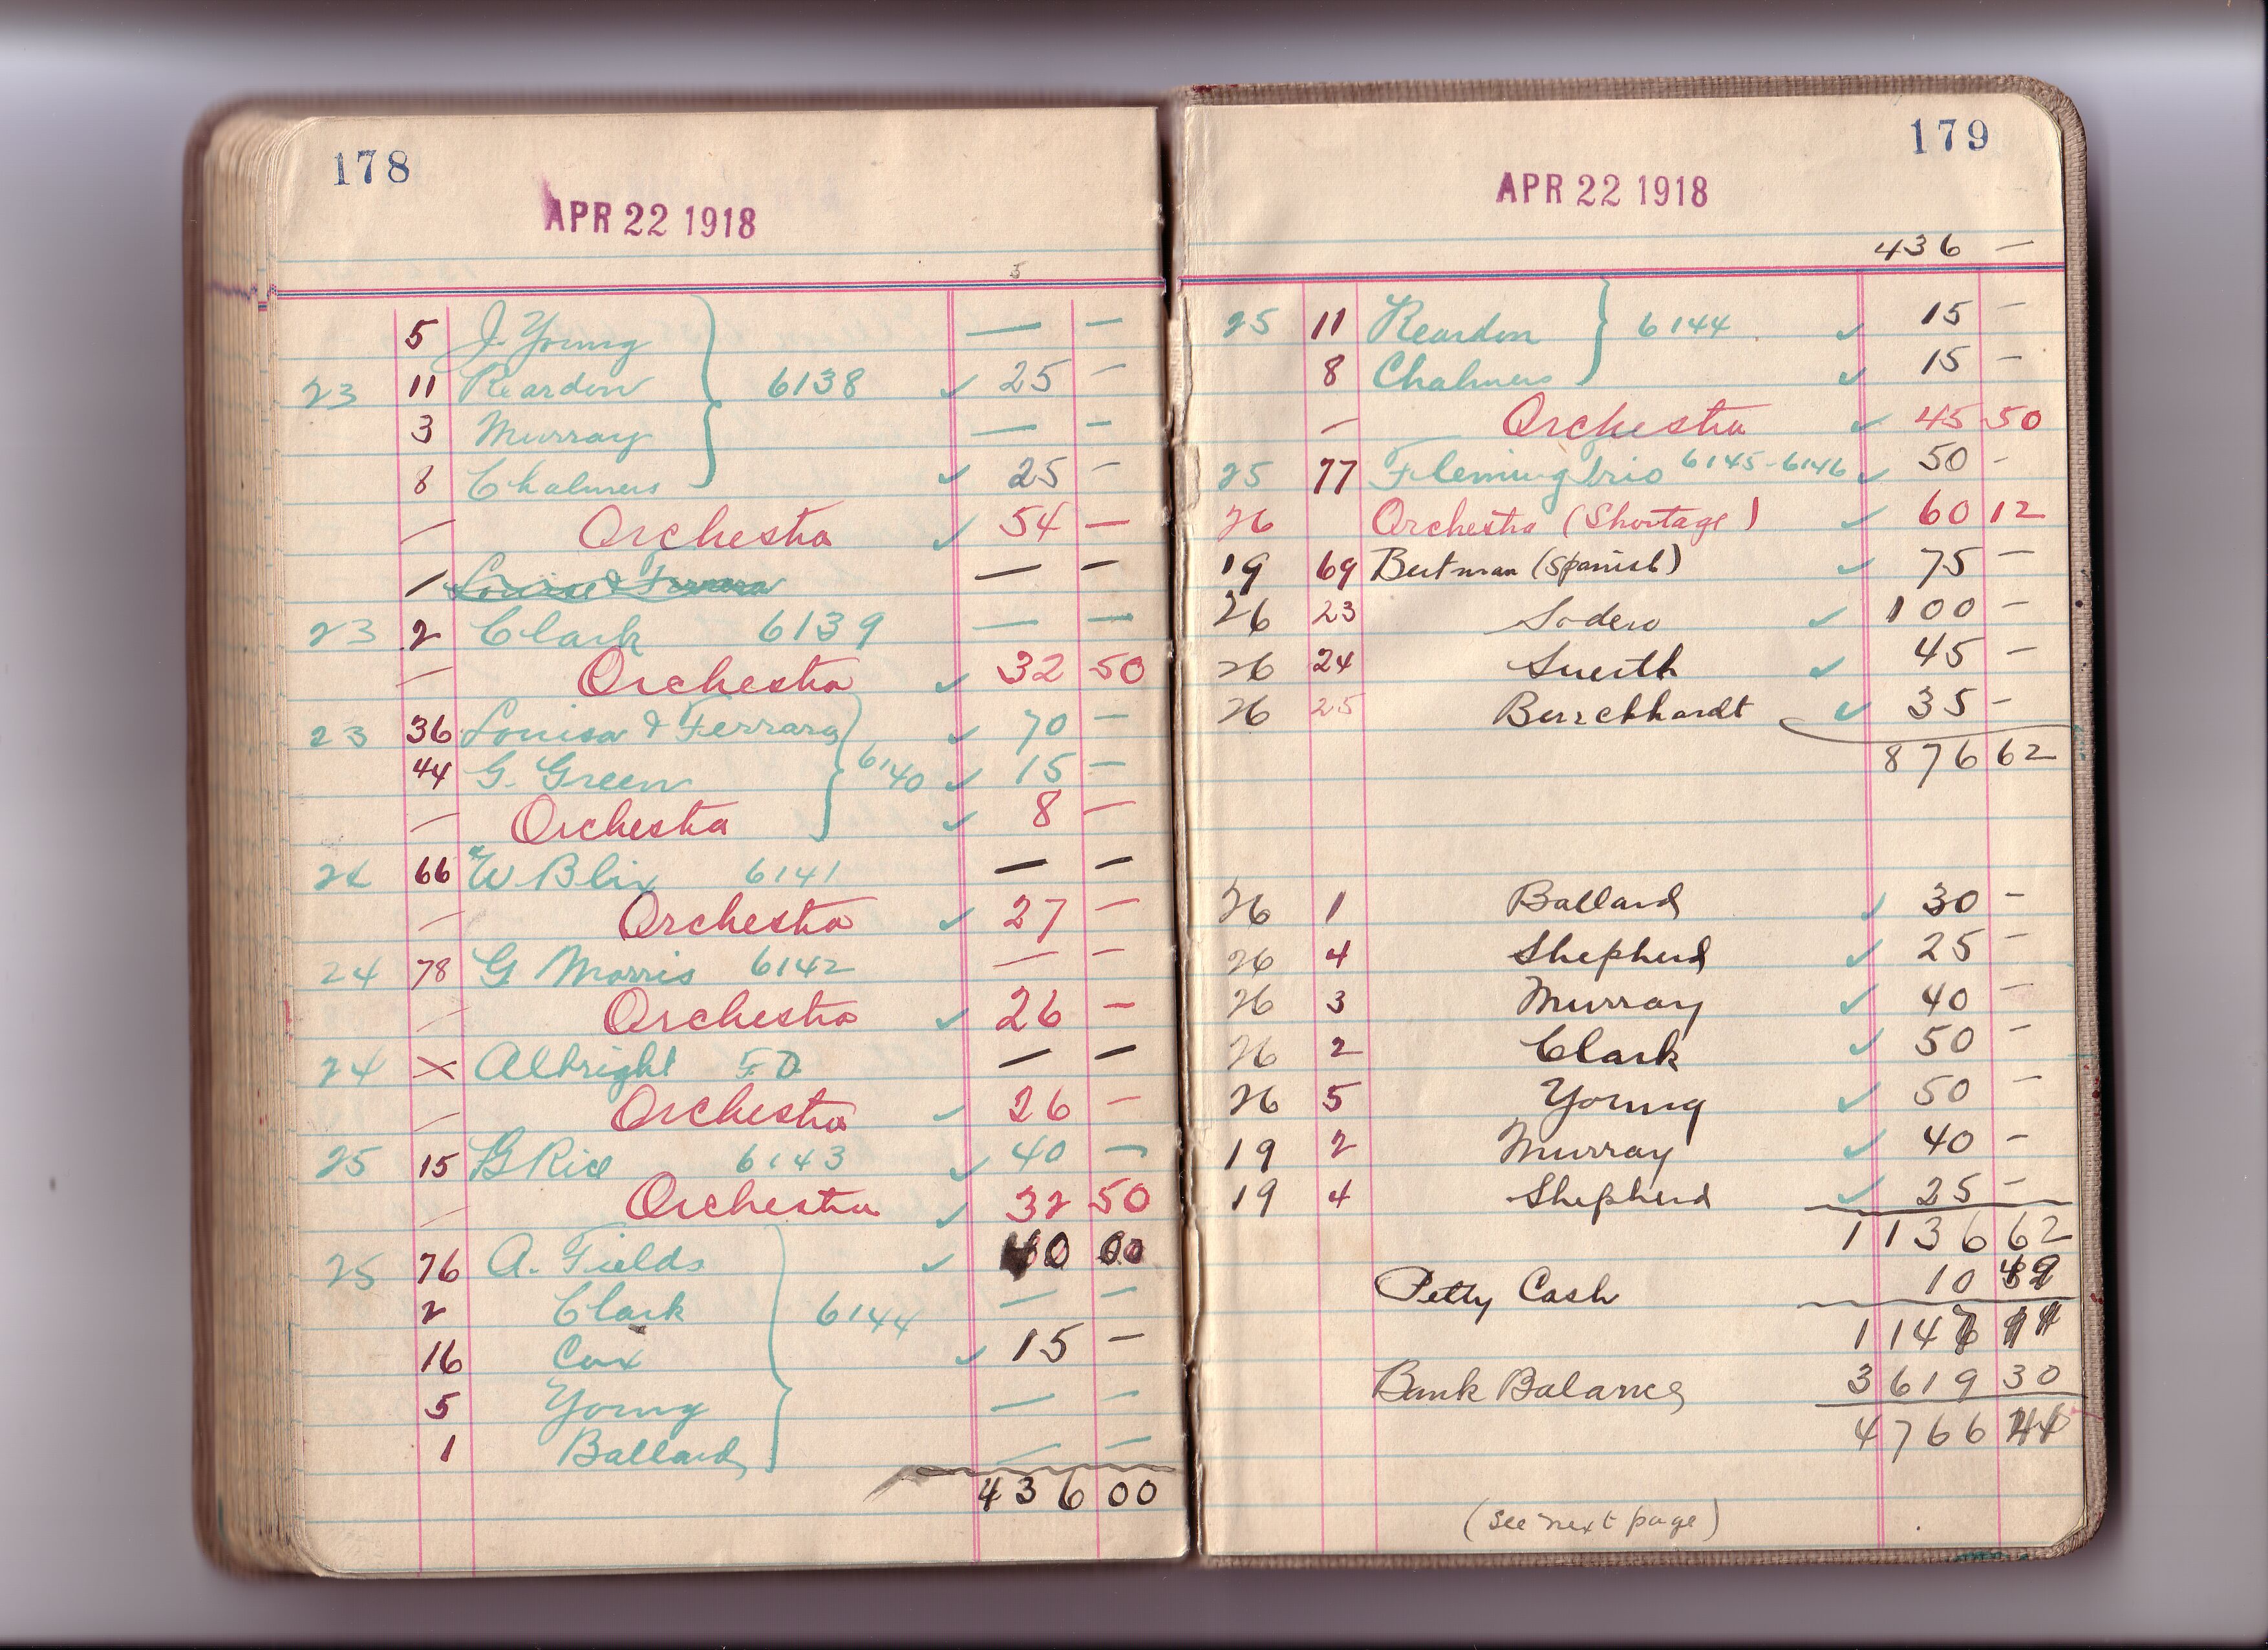 178
APR 22 1918
5
5 J. Young — —
23 11 Reardon 6138 ✓ 25 —
3 Murray — —
8 Chalmers ✓ 25 —
— Orchestra ✓ 54 —
— Louise & Ferrara — —
23 2 Clark 6139 — —
— Orchestra ✓ 32 50
23 36 Louisa & Ferrara ✓ 70 —
44 G. Green 6140 ✓ 15 —
— Orchestra ✓ 8 —
24 66 W Blix 6141 — —
— Orchestra ✓ 27 —
24 78 G Morris 6142 — —
— Orchestra ✓ 26 —
24 x Albright — —
— Orchestra ✓ 26 —
25 15 G Rice 6143 ✓ 40 —
— Orchestra ✓ 32 50
25 76 A. Fields ✓
2 Clark 6144 — —
16 Cox ✓ 15 —
5 Young — —
1 Ballard — —
436 00
179
APR 22 1918
436 —
25 11 Reardon 6144 ✓ 15 —
8 Chalmers ✓ 15 —
— Orchestra ✓ 45 50
25 77 Fleming trio 6145-6146 ✓ 50 —
26 Orchestra (Shortage) ✓ 60 12
19 69 (Spanish) ✓ 75 —
26 23 Sodero ✓ 100 —
26 24 ✓ 45 —
26 25 Burckhardt ✓ 35 —
876 62
26 1 Ballard ✓ 30 —
26 4 Shepherd ✓ 25 —
26 3 Murray ✓ 40 —
26 2 Clark ✓ 50 —
26 5 Young ✓ 50 —
19 2 Murray ✓ 40 —
19 4 Shepherd ✓ 25 —
1136 62
Petty Cash 10
Bank Balance 3619 30
4766
(see next page)